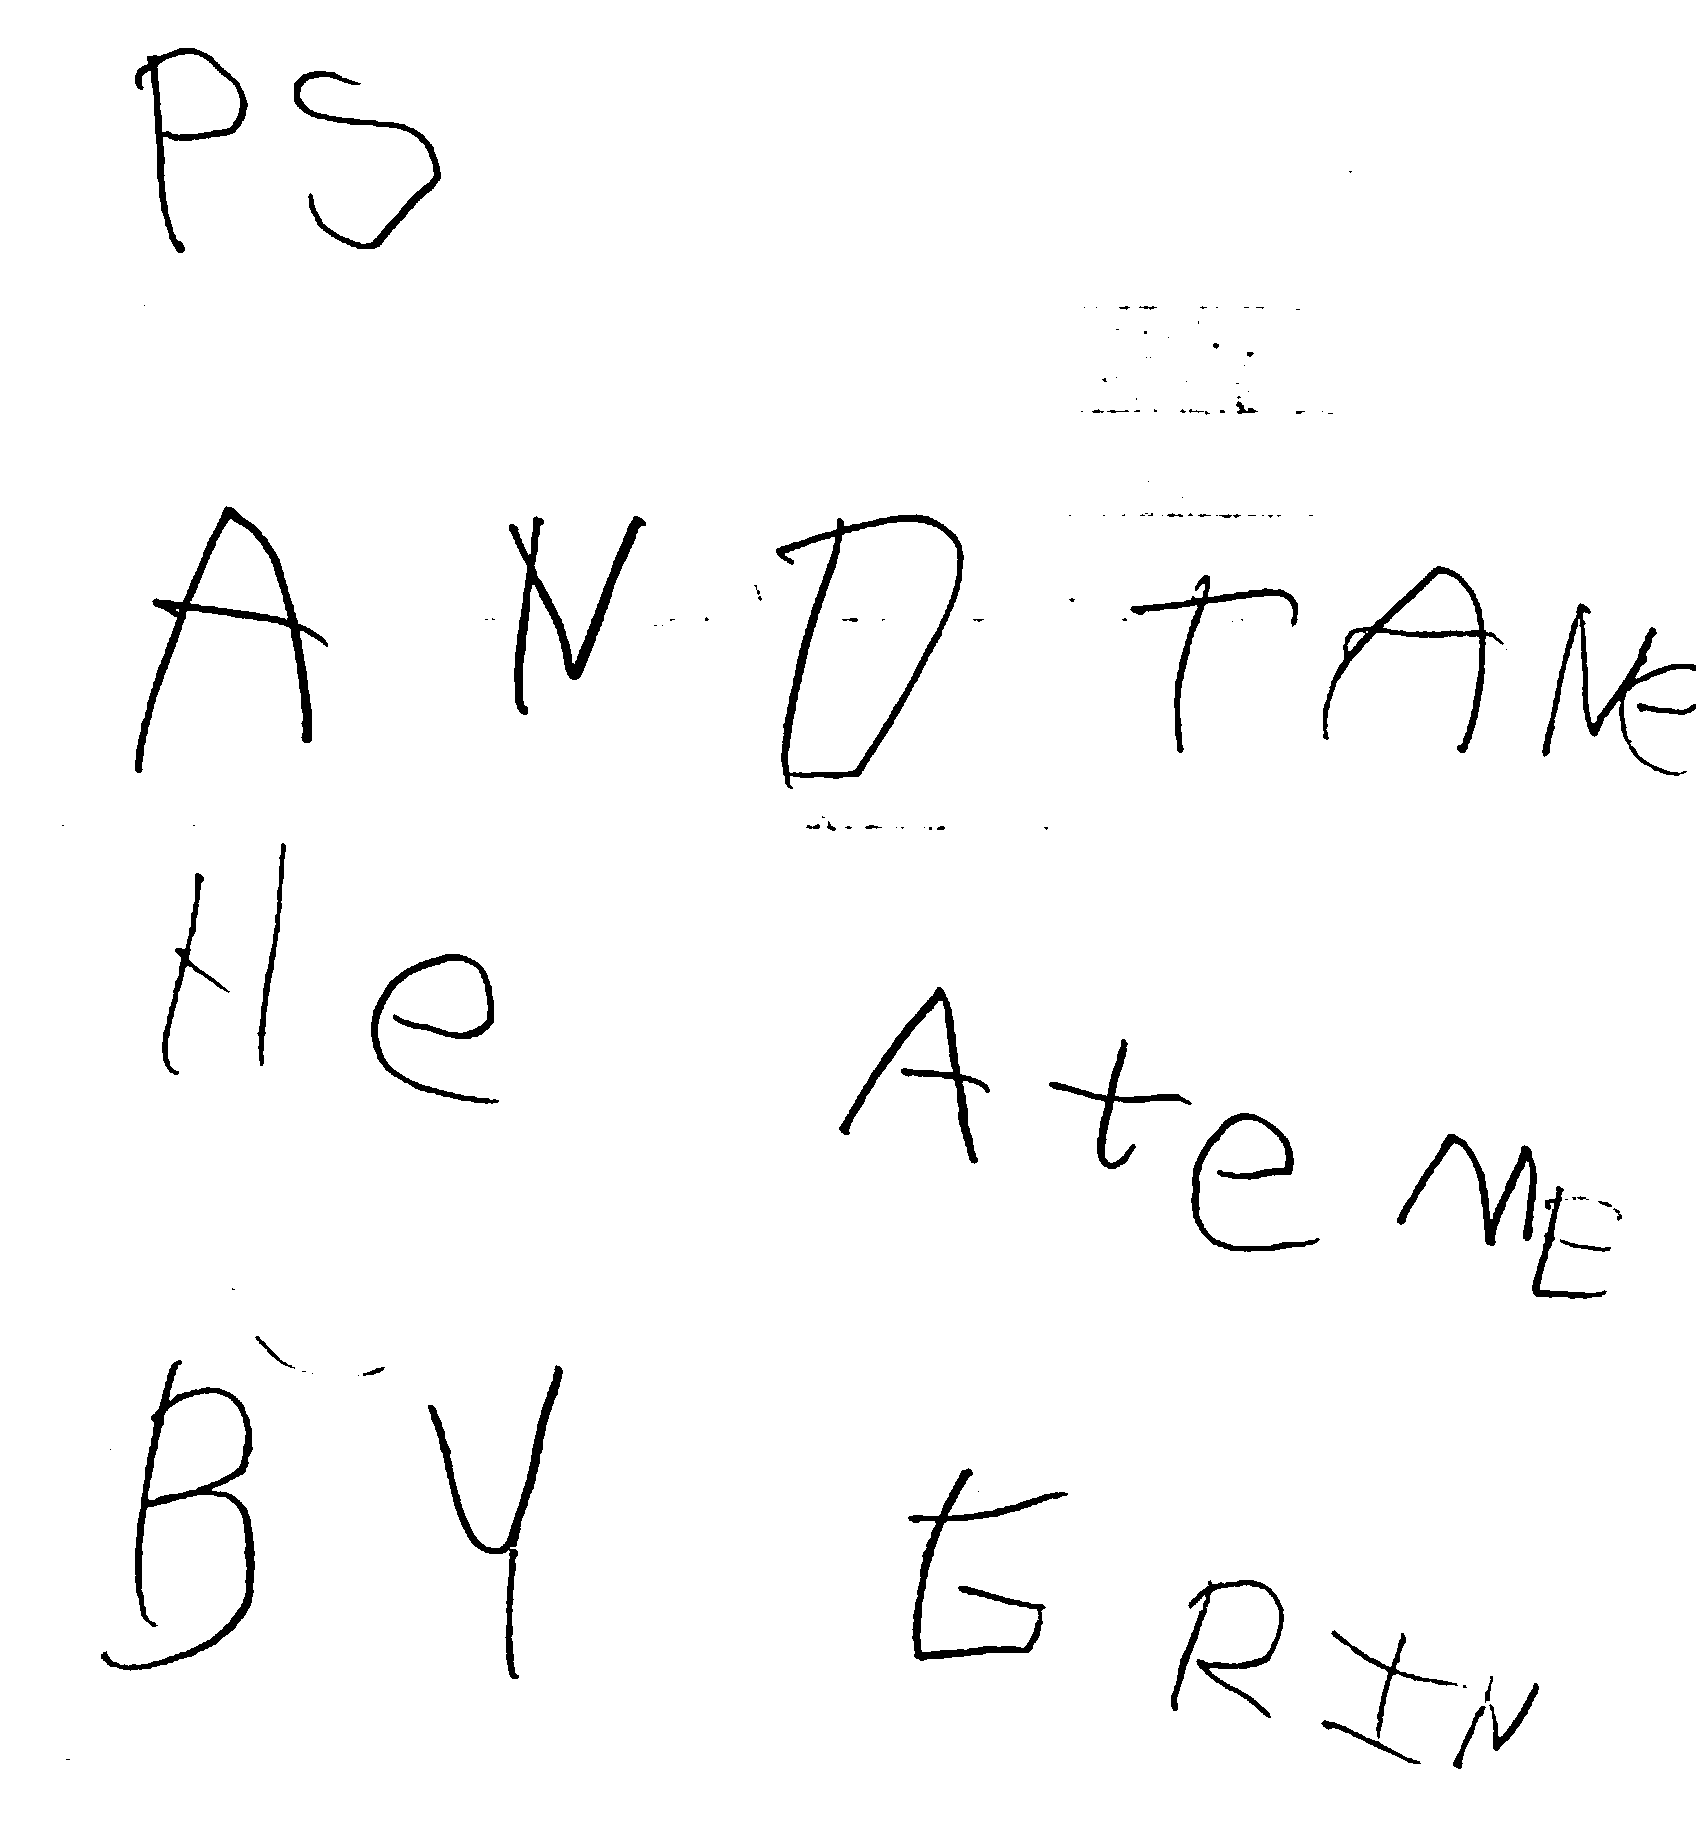 PS
AND TANe
He Ate ME
BY ERIN